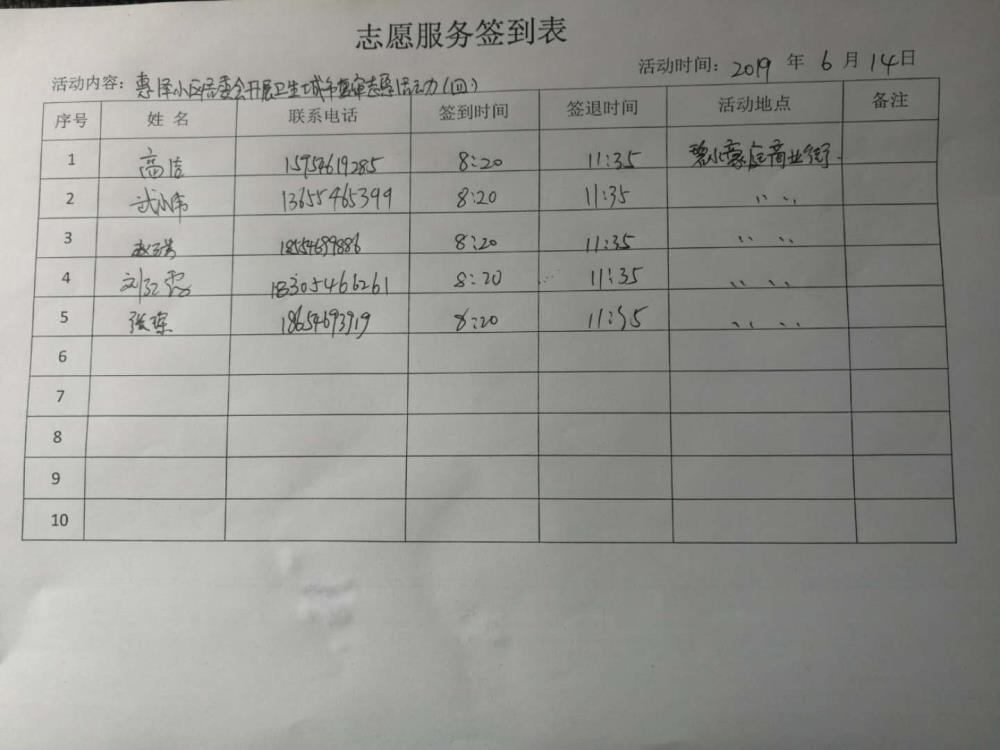 志愿服务签到表
活动内容：惠泽小区居委会开展卫生城市复审志愿活动(四) 活动时间：2019 年 6 月 14 日
序号 姓名 联系电话 签到时间 签退时间 活动地点 备注
1 高洁 15954619285 8:20 11:35 碧水豪庭商业街
2 武小伟 13655465399 8:20 11:35 〃 〃
3 赵 18554699886 8:20 11:35 〃 〃
4 刘红霞 18305466261 8:20 11:35 〃 〃
5 张琛 18654693919 8:20 11:35 〃 〃
6
7
8
9
10